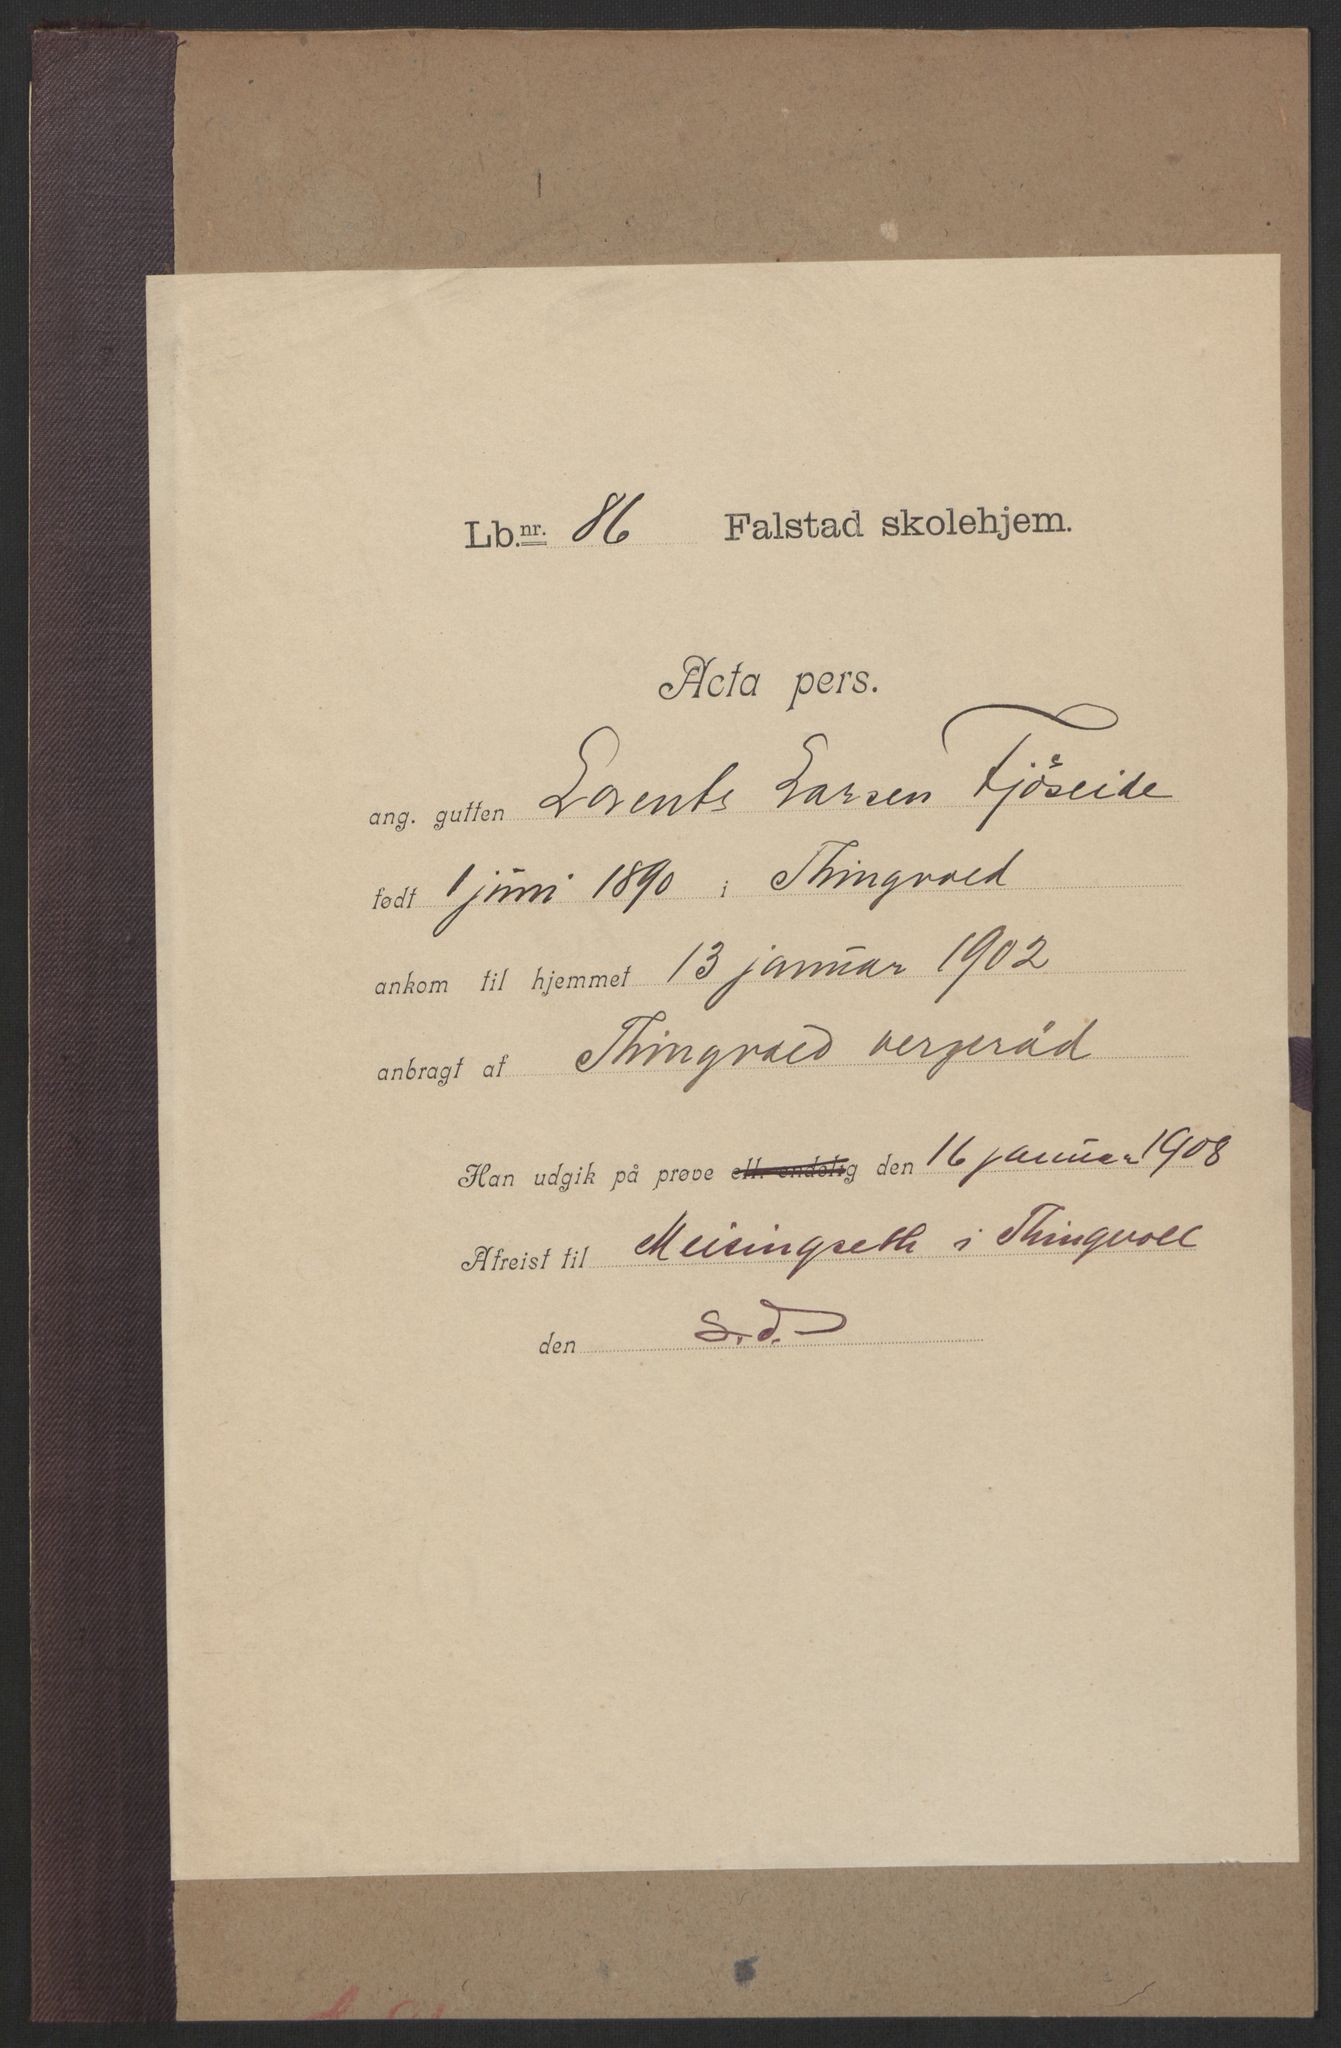 Lb.nr. 86 Falstad skolehjem.
Acta pers.
ang. gutten Lorents Larsen Fjöseide
født 1 juni 1890 i Thingvold
ankom til hjemmet 13 januar 1902
anbragt af Thingvold vergeråd
Han udgik på prøve ell. endelig den 16 januar 1908
Afreist til Meisingseth i Thingvoll
den s.d.